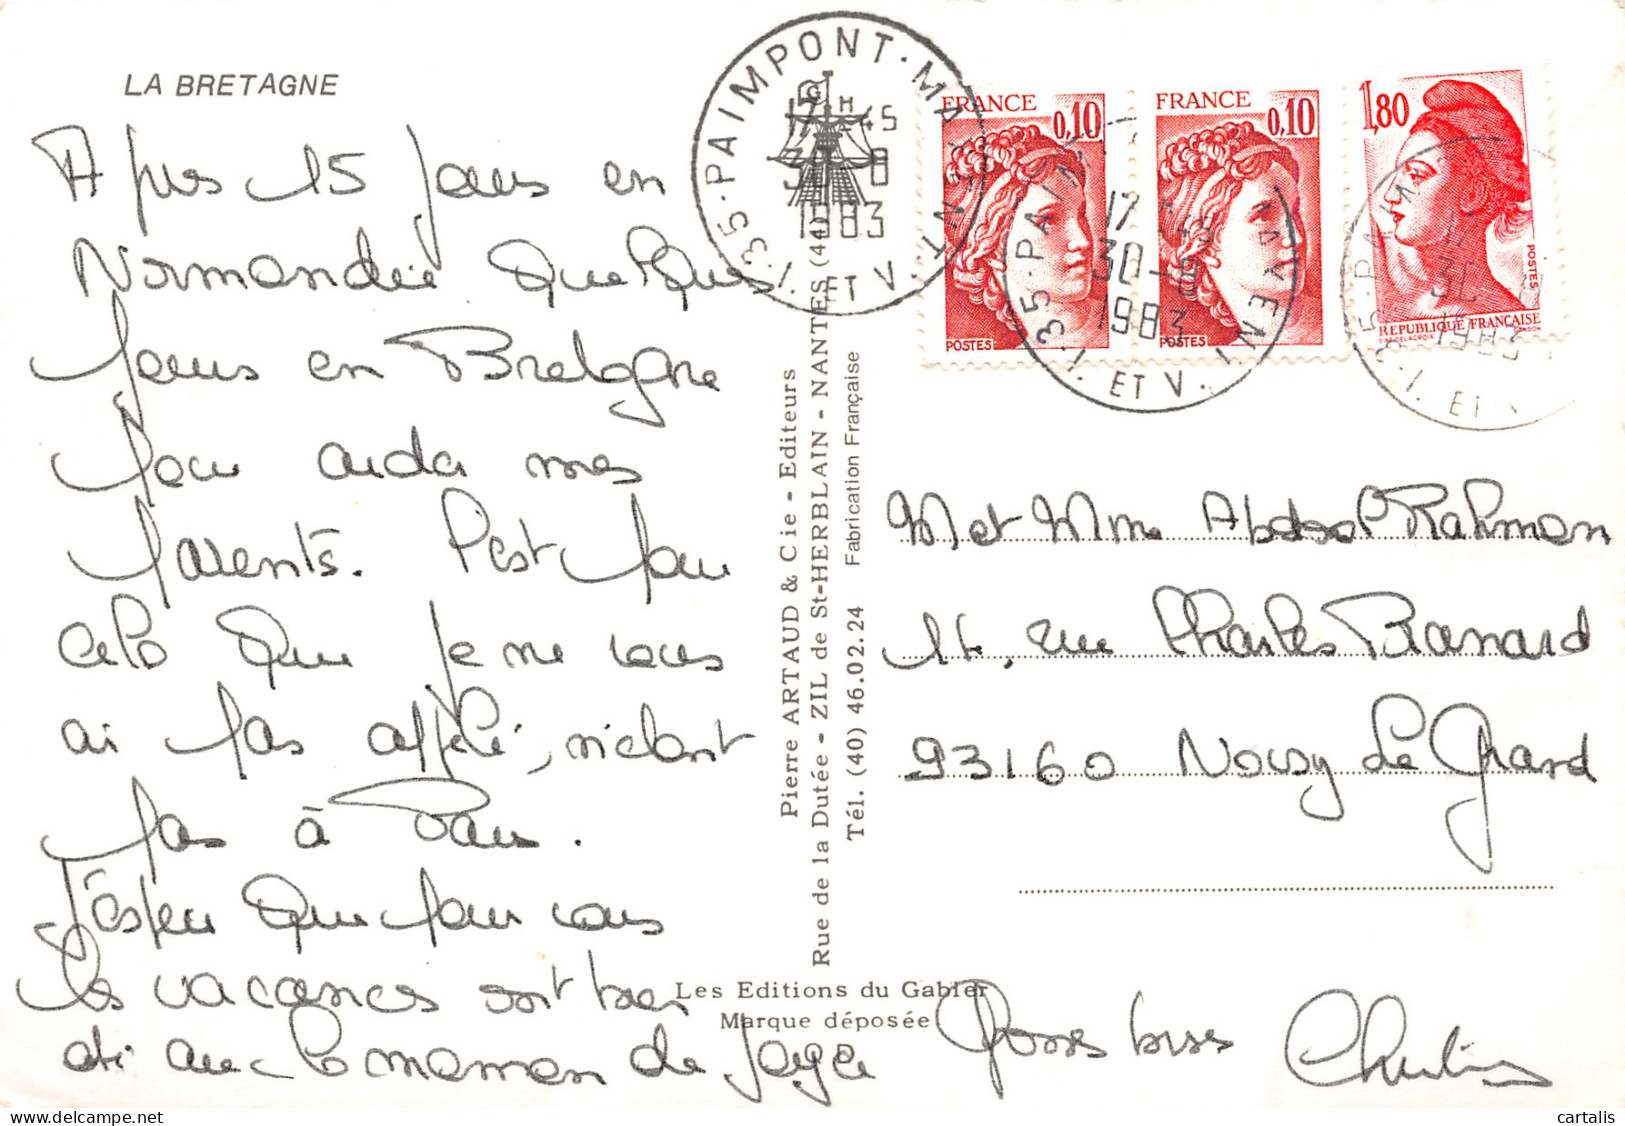 LA BRETAGNE
Apres 15 jours en
Normandie quelques
jours en Bretagne
pour aider mes
parents. C'est pour
cela que je ne vous
ai pas appelé, n'étant
pas à Paris.
J'espère que pour vous
les vacances sont bien
avec la maman de
Grosses bises
Pierre ARTAUD & Cie - Editeurs
Rue de la Dutée - ZIL de St-HERBLAIN - NANTES (44)
Tél. (40) 46.02.24 Fabrication Française
Les Editions du Gabier
Marque déposée
35-PAIMPONT-MA
I. ET V.
GH
17 45
30-8
1983
FRANCE
0,10
POSTES
FRANCE
0,10
POSTES
1,80
POSTES
REPUBLIQUE FRANÇAISE
17
30-8
1983
I. ET V.
M et Mme Abdool Rahman
14, rue Charles
93160 Noisy Le Grand
cartalis